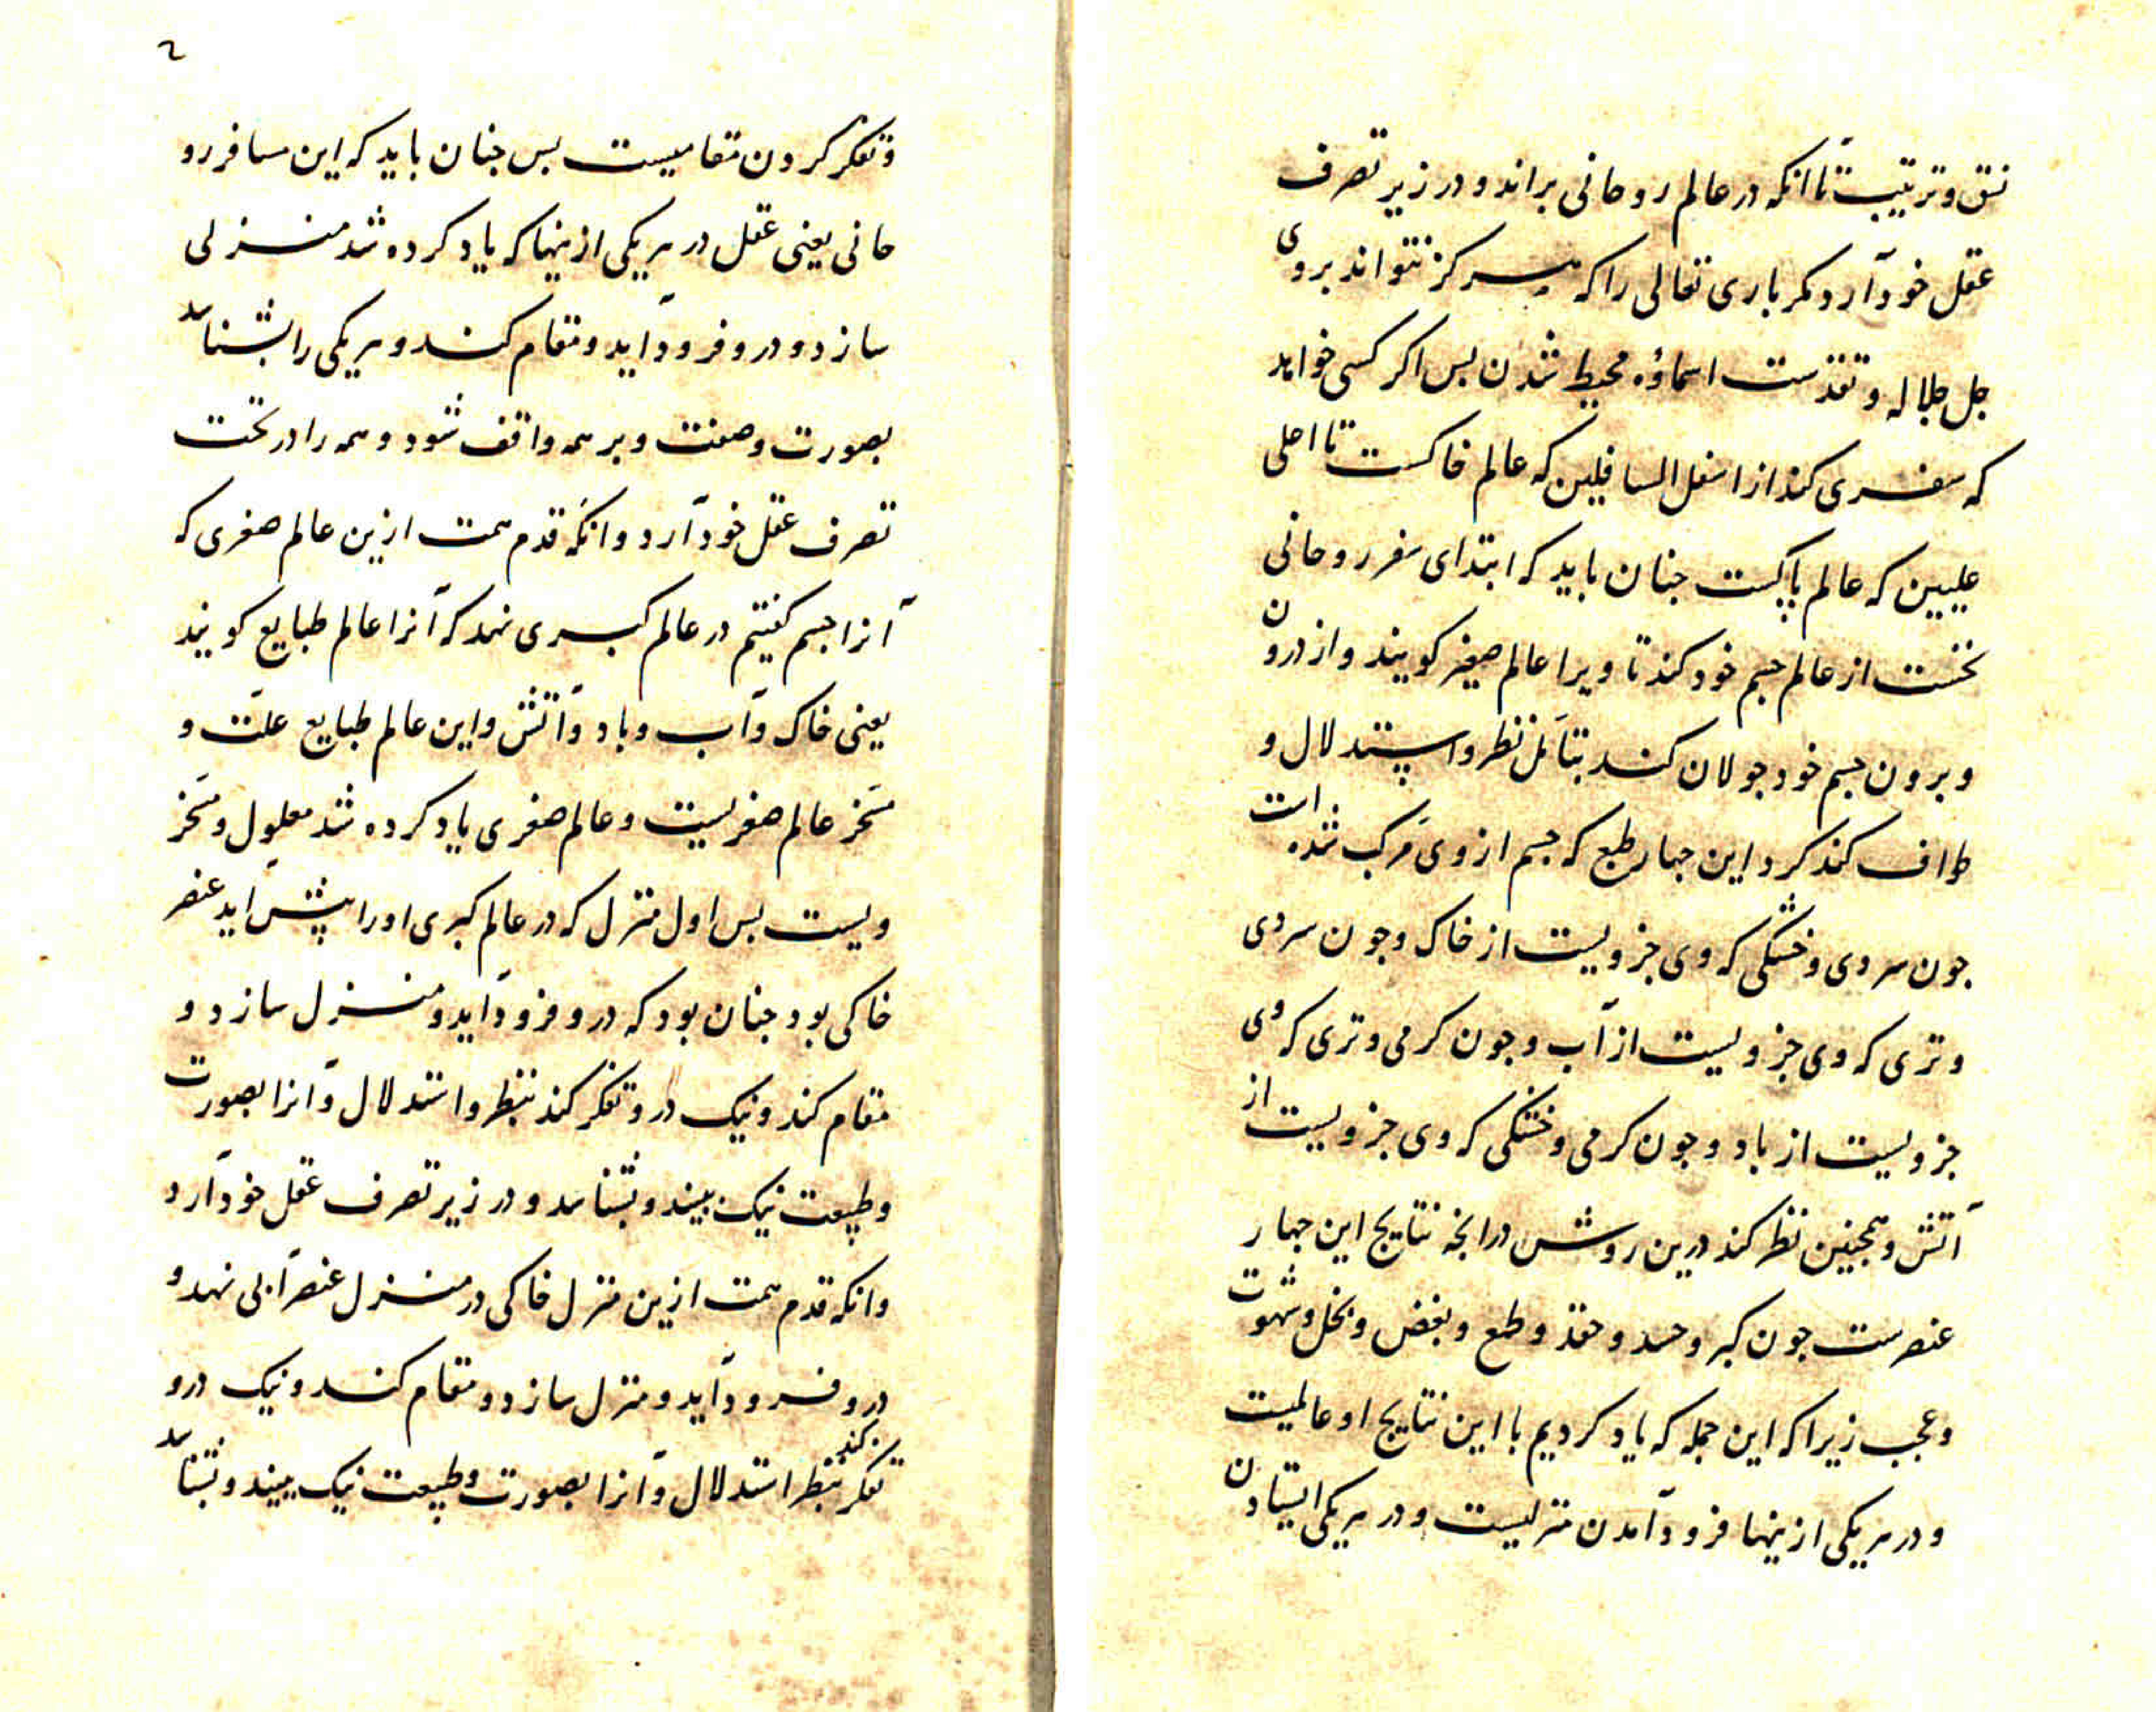 نسق و ترتیب تا انکه در عالم روحانی براند و در زیر تصرف
عقل خود آرد مکر باری تعالی را که هرکز نتواند بروی
جل جلاله و تقدست اسماؤه محیط شدن بس اکر کسی خواهد
که سفری کند از اسفل السافلین که عالم خاکست تا اعلی
علیین که عالم پاکست جنان باید که ابتدای سفر روحانی
نخست از عالم جسم خود کند تا ویرا عالم صغیر کویند و از درون
و برون جسم خود جولان کند بتأمل نظر و استدلال و
طواف کند کرد این جهار طبع که جسم از وی مرکب شده است
جون سردی و خشکی که وی جزویست از خاک و جون سردی
و تری که وی جزویست از آب و جون کرمی و تری که وی
جزویست از باد و جون کرمی و خشکی که وی جزویست از
آتش و همجنین نظر کند درین روش در انجه نتایج این جهار
عنصرست جون کبر و حسد و حقد و طمع و بغض و بخل و شهوت
و عجب زیرا که این جمله که یاد کردیم با این نتایج او عالمیست
و در هر یکی ازینها فرود آمدن منزلیست و در هر یکی ایستادن
۲
و تفکر کردن مقامیست بس جنان باید که این مسافر رو
حانی یعنی عقل در هر یکی ازینها که یاد کرده شد منزلی
سازد و درو فرود آید و مقام کند و هر یکی را بشناسد
بصورت و صفت و بر همه واقف شود و همه را در تحت
تصرف عقل خود آرد و انکه قدم همت ازین عالم صغری که
آنرا جسم کفتیم در عالم کبری نهد که آنرا عالم طبایع کویند
یعنی خاک و آب و باد و آتش و این عالم طبایع علت و
مسخر عالم صغریست و عالم صغری یاد کرده شد معلول و مسخر
ویست بس اول منزل که در عالم کبری او را پیش آید عنصر
خاکی بود جنان بود که درو فرود آید و منزل سازد و
مقام کند و نیک درو تفکر کند بنظر و استدلال و آنرا بصورت
و طبیعت نیک بیند و بشناسد و در زیر تصرف عقل خود آرد
و انکه قدم همت ازین منزل خاکی در منزل عنصر آبی نهد و
درو فرود آید و منزل سازد و مقام کند و نیک درو
تفکر کند بنظر استدلال و آنرا بصورت و طبیعت نیک بیند و بشناسد